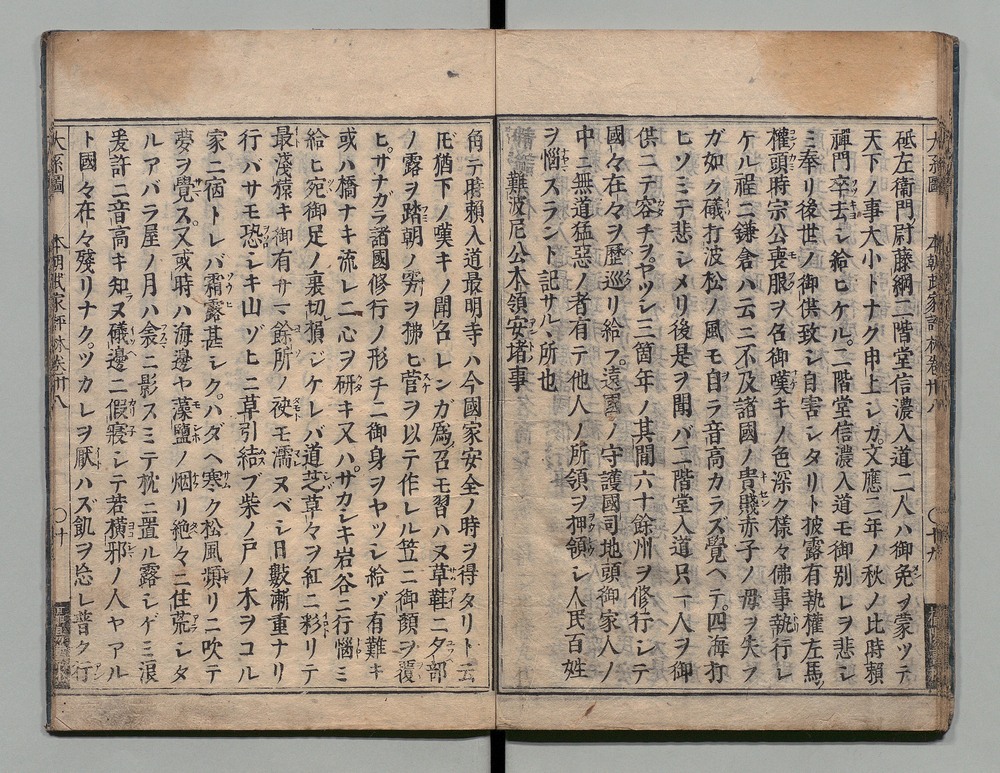 砥左衞門尉藤綱二階堂信濃入道二人ハ御免ヲ蒙ツテ
天下ノ事大小トナク申上シガ文應二年ノ秋ノ比時賴
禪門卒去シ給ヒケル。二階堂信濃入道モ御別レヲ悲シ
ミ奉リ後世ノ御供致シ自害シタリト披露有執權左馬
權頭時宗公喪服ヲ名御嘆キノ色深ク樣々佛事執行レ
ケル程ニ鎌倉ハ云ニ不及諸國ノ貴賤赤子ノ母ヲ失フ
ガ如ク礒打波松ノ風モ自ラ音高カラズ覺ヘテ。四海打
ヒソミテ悲シメリ後是ヲ聞バ二階堂入道只一人ヲ御
供ニテ容チヲヤツシ三箇年ノ其間六十餘州ヲ修行シテ
國々在々ヲ歷巡リ給フ。遠國ノ守護國司地頭御家人ノ
中ニ無道猛惡ノ者有テ他人ノ所領ヲ押領シ人民百姓
ヲ惱スラント記サル、所也
難波尼公本領安堵事
角テ時賴入道最明寺ハ今國家安全ノ時ヲ得タリト云
𪜈猶下ノ嘆キノ聞名レンガ爲召モ習ハヌ草鞋ニ夕部
ノ露ヲ踏朝ノ雰ヲ拂ヒ菅ヲ以テ作レル笠ニ御顏ヲ覆
ヒ。サナガラ諸國修行ノ形チニ御身ヲヤツシ給ゾ有難キ
或ハ橋ナキ流レニ心ヲ研キ又ハ。サカシキ岩谷ニ行惱ミ
給ヒ宛御足ノ裏切損ジケレバ道芝草々ヲ紅ニ彩リテ
最淺猿キ御有サマ餘所ノ袂モ濡ヌベシ日數漸重ナリ
行バサモ恐シキ山ヅヒニ草引結ブ柴ノ戸ノ木ヲコル
家ニ宿トレバ霜露甚シク。ハダヘ寒ク松風頻リニ吹テ
夢ヲ覺ス。又或時ハ海邊ヤ藻鹽ノ烟リ絶々ニ住荒シタ
ルアバラ屋ノ月ハ衾ニ影スミテ枕ニ置ル露シゲミ浪
爰許ニ音高キ知ヌ礒邊ニ假寢シテ若橫邪ノ人ヤアル
ト國々在々殘リナク。ツカレヲ厭ハズ飢ヲ忘レ普ク行
本朝武家評林卷卅八
〇十